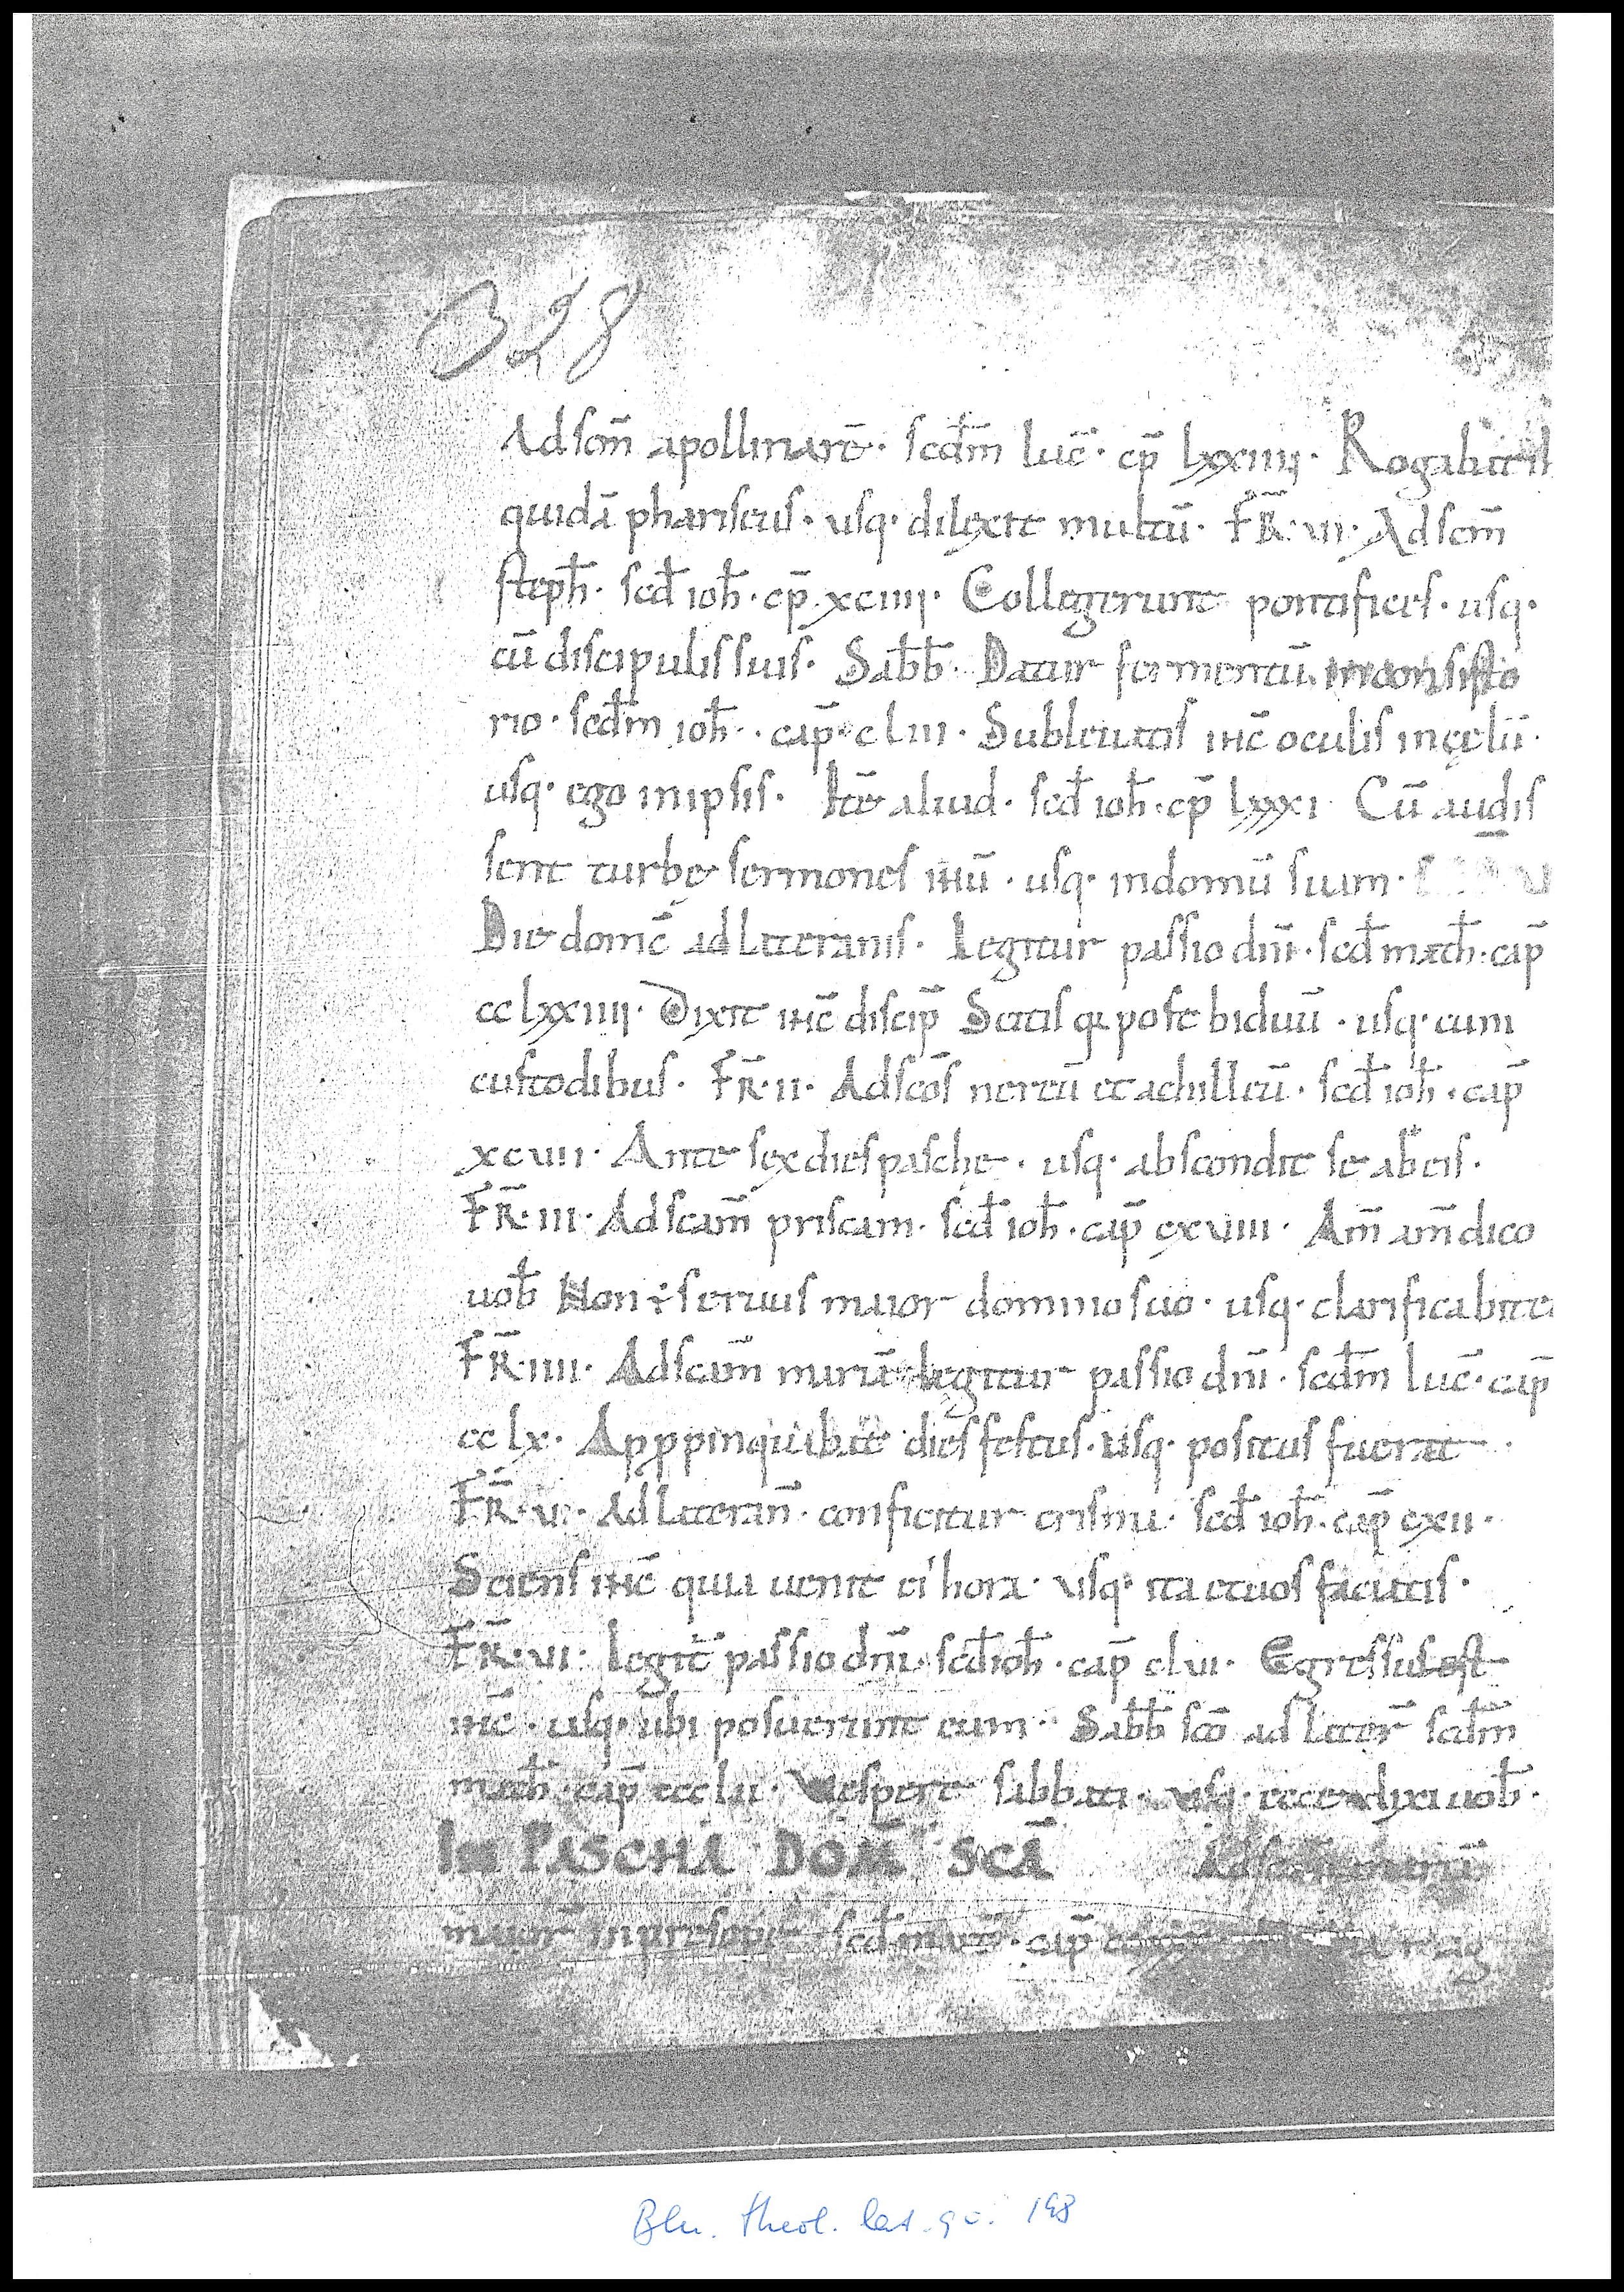 328
Ad scm̄ apollinarē· scdm̄ luc̄· cp̄ lxxiiii· Rogabat
quidā phariseus· usq· dilexit multū· FR̄· vi· Ad scm̄
steph̄· scd̄ ioh̄· cp̄ xciiii· Collegerunt pontifices· usq·
cū discipulis suis· Sab̄b̄· Datur fermentū in consisto
rio· scdm̄ ioh̄· cap̄· cliii· Subleuatis ihc̄ oculis in cęlū·
usq· ego in ipsis· Itē aliud· scd̄ ioh̄· cp̄ lxxxi Cū audis
sent turbę sermones ihū· usq· in domū suam·
Die domc̄ ad lateranis· Legitur passio dnī· scd̄ math̄· cap̄
cclxxiiii· Dixit ihc̄ discip̄ Scitis q post biduū· usq· cum
custodibus· FR̄· ii· Ad scōs nereū et achilleū· scd̄ ioh̄· cap̄
xcvii· Ante sex dies pasche· usq· abscondit se ab eis·
FR̄· iii· Ad scam̄ priscam· scd̄ ioh̄· cap̄ cxviii· Am̄ am̄ dico
uob̄ Non ÷ seruus maior domino suo· usq· clarificabit
FR̄· iiii· Ad scam̄ mariā legitur passio dnī· scdm̄ luc̄· cap̄
cclx· Apppinquabat dies festus· usq· positus fuerat·
FR̄· v· Ad lateran̄· conficitur crisma· scd̄ ioh̄· cap̄ cxii·
Sciens ihc̄ quia uenit ei' hora· usq· ita et uos faciatis·
FR̄· vi· Legit̄ passio dnī· scd̄ ioh̄· cap̄ clvi· Egressus est
ihc̄· usq· ubi posuerunt eum· Sab̄b̄ scō ad later̄ scdm̄
math̄· cap̄ ccclii· Vespere sabbati· usq· ecce dixi uob̄·
IN PASCHA DOM̄ SCĀ Ad scam̄ mariā
maior̄ in presepe· scd̄ marc̄· cap̄
Bln. theol. lat. qu. 198